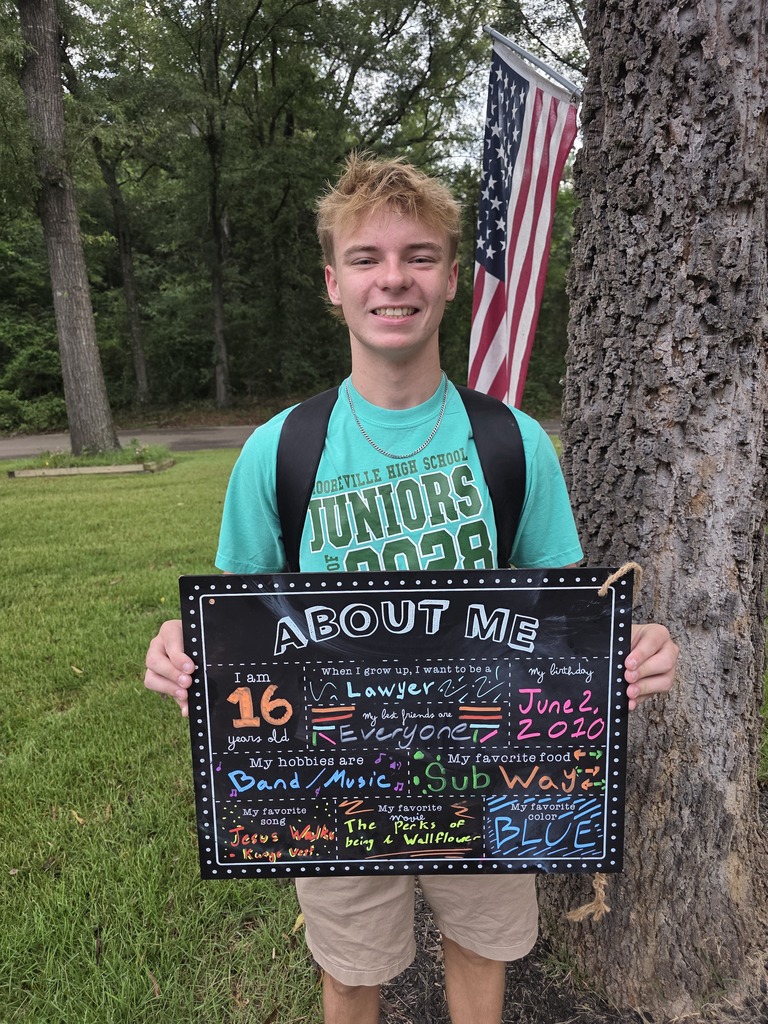 HIGH SCHOOL
JUNIORS
OF 2028
ABOUT ME
I am
16
years old
When I grow up, I want to be a(
Lawyer
My best friends are
Everyone
My birthday
June 2,
2010
My hobbies are
Band/Music
My favorite food
SubWay
My favorite
song
Jesus Walks
- Kanye West.
My favorite
movie
The Perks of
being a Wallflower
My favorite
color
BLUE